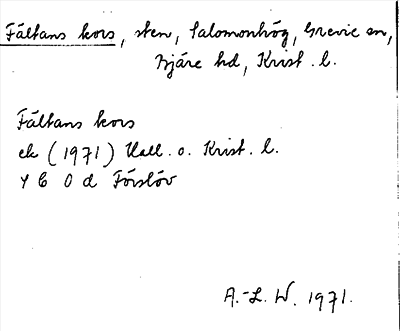 Fältans kors, sten, Salomonhög, Grevie sn,
Bjäre hd, Krist. l.
Fältans kors
ek (1971) Hall. o. Krist. l.
4 C 0 d Förslöv
A.-L. W. 1971.